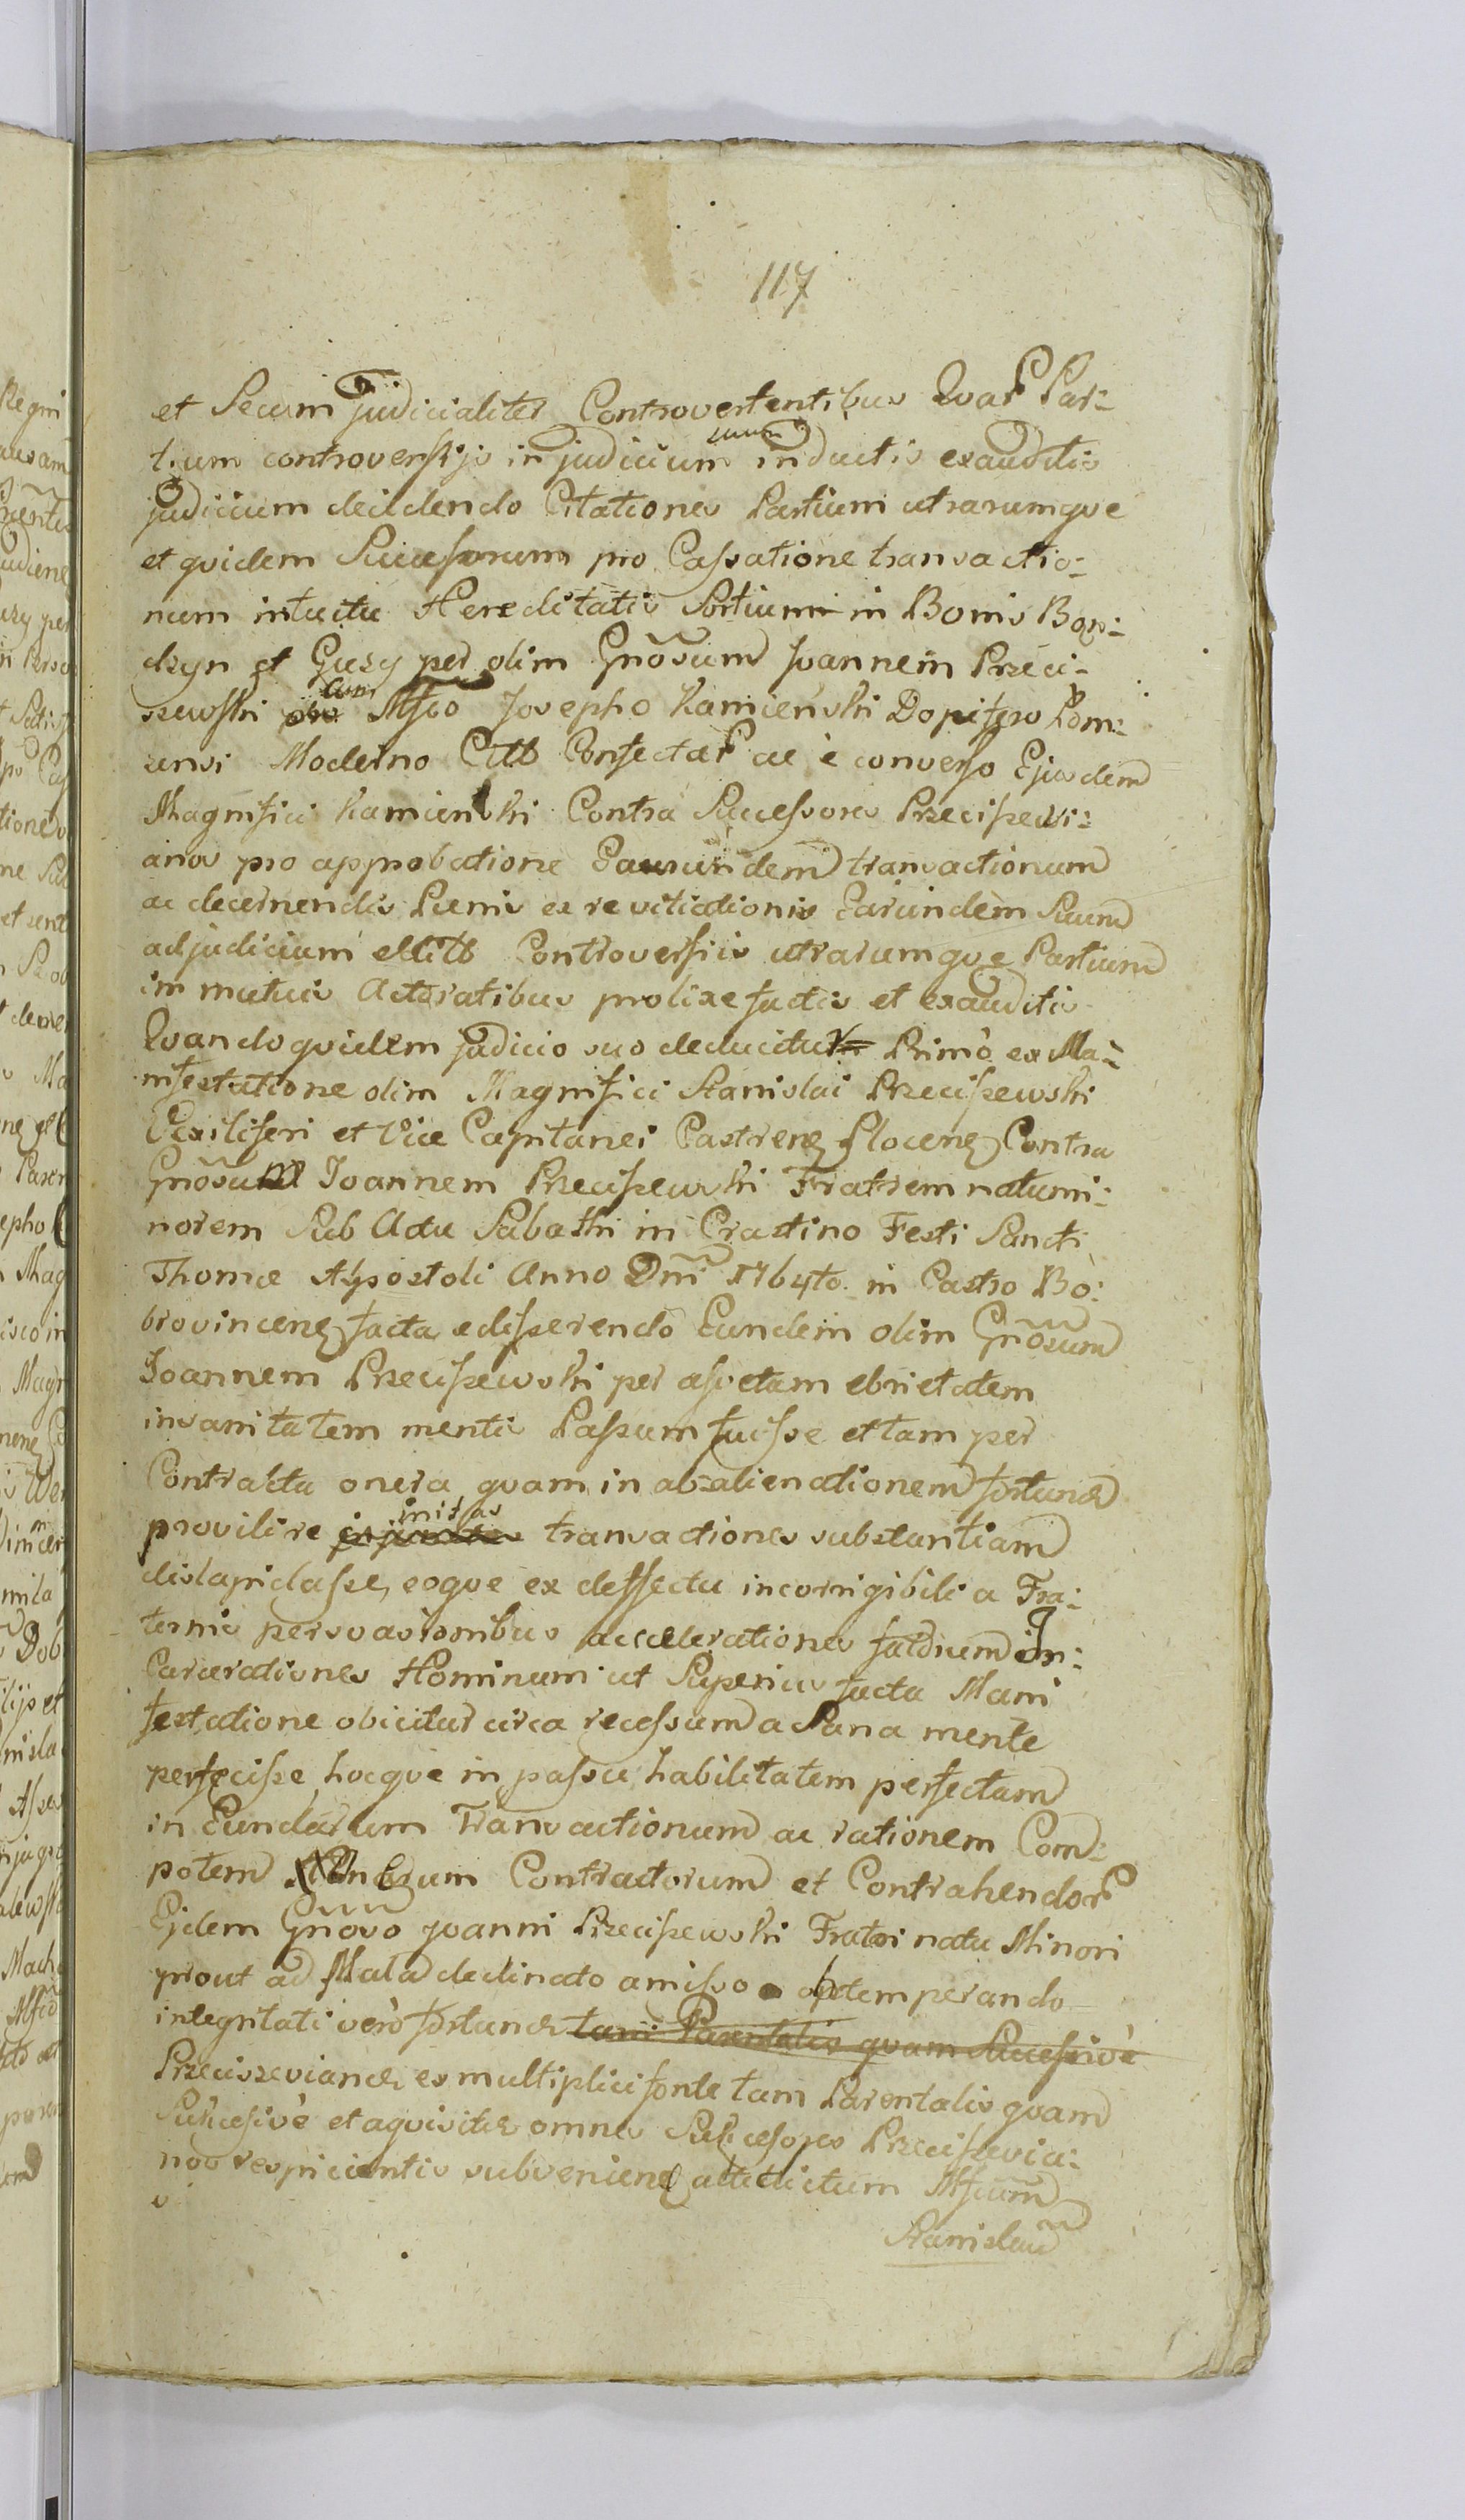 117
et Secum judicialiter Controvertentibus Quar Par:
tium controversijs in judicium suum inductis exauditis
judicium decidendo Citationes Partium utrarumque
et quidem Successorum pro Cassatione transactio:
num intuitu Hereditatis Sortium in Bonis Bon:
dzyn et Guzy per olim Gnosum Joannem Przeci:
szewski cum Mfco Josepho Kamienski Dapifero Lom:
zensi Moderno Citto Confectar ac è converso Ejusdem
Magnifici Kamienski Contra Successores Przecisevi:
anos pro approbatione Earundem transactionum
ac decernendis Penis ex re vitiationis Earundem Suum
ad judicium editt Controversiis utrarumque Partium
in mutuis Actoratibus prolixe factis et exauditis
Quandoquidem judicio suo deducitur Primò ex Ma:
nifestatione olim Magnifici Stanislai Przecisewski
Vexiliferi et Vice Capitanei Castrens Plocens Contra
Gnosum Joannem Przecisewski Fratrem natu mi:
norem Sub Actu Sabathi in Crastino Festi Sancti
Thomæ Apostoli Anno Dni 1764to in Castro Bo:
brovincens facta edisserendo Eundem olim Gnosum
Joannem Przecisewski per assvetam ebrietatem
insanitatem mentis Passum fuisse et tam per
Contracta onera quam in abalienationem fortunæ
pro vili re initas transactiones substantiam
dislapidasse, eoque ex deffectu incorrigibili a Fra:
ternis persvasionibus accelerationes In:
Carcerationes Hominum ut Superius facta Mani
festatione obicitur circa recessum a Sana mente
perfecisse hocque in passu habilitatem perfectam
in Eundarum Transactionum ac rationem Com:
potem Contractorum et Contrahendor
Ejdem Gnoso Joanni Przecisewski Fratri natu Minori
prout ad Mala declinato amisso obtemperando
integritati verò fortunæ tam Parentalis quam Successivè
Przeciszevianæ ex multiplici fonte tam Parentalis quam
Successivè et aquisitæ omnes Successores Przecisevia:
nos respicientis subveniens attedictum Mfcum
Stanislaum